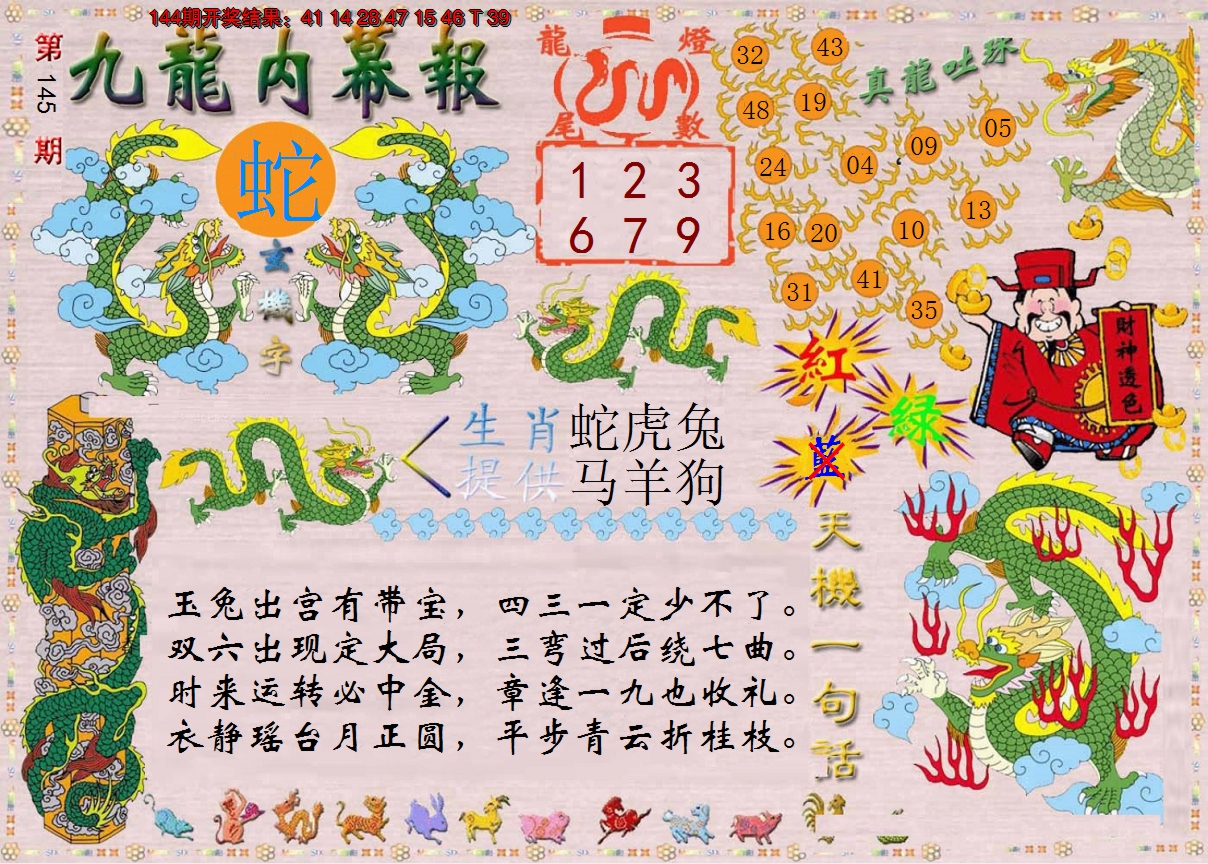 144期开奖结果：41 14 28 47 15 46 T 39
第145期
九龍内幕報
蛇
玄機字
龍燈
尾數
1 2 3
6 7 9
真龍吐珠
32 43
48 19
24 04 09 05
16 20 10 13
31 41 35
財神透色
紅
綠
藍
生肖 蛇虎兔
提供 马羊狗
天機一句話
玉兔出宫有带宝，四三一定少不了。
双六出现定大局，三弯过后绕七曲。
时来运转必中金，章逢一九也收礼。
衣静瑶台月正圆，平步青云折桂枝。